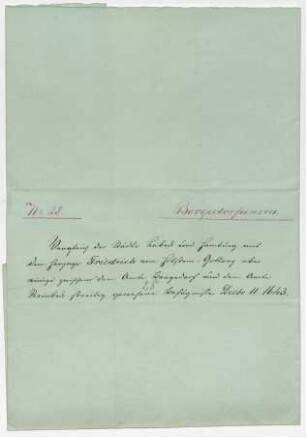 No 28.
Bergedorfensia.
Vergleich der Städte Lübeck und Hamburg mit
dem Herzoge Friedrich von Holstein-Gottorp über
einige zwischen dem Amte Bergedorf und dem Amte
Reinbek streitig gewesene Befugnisse